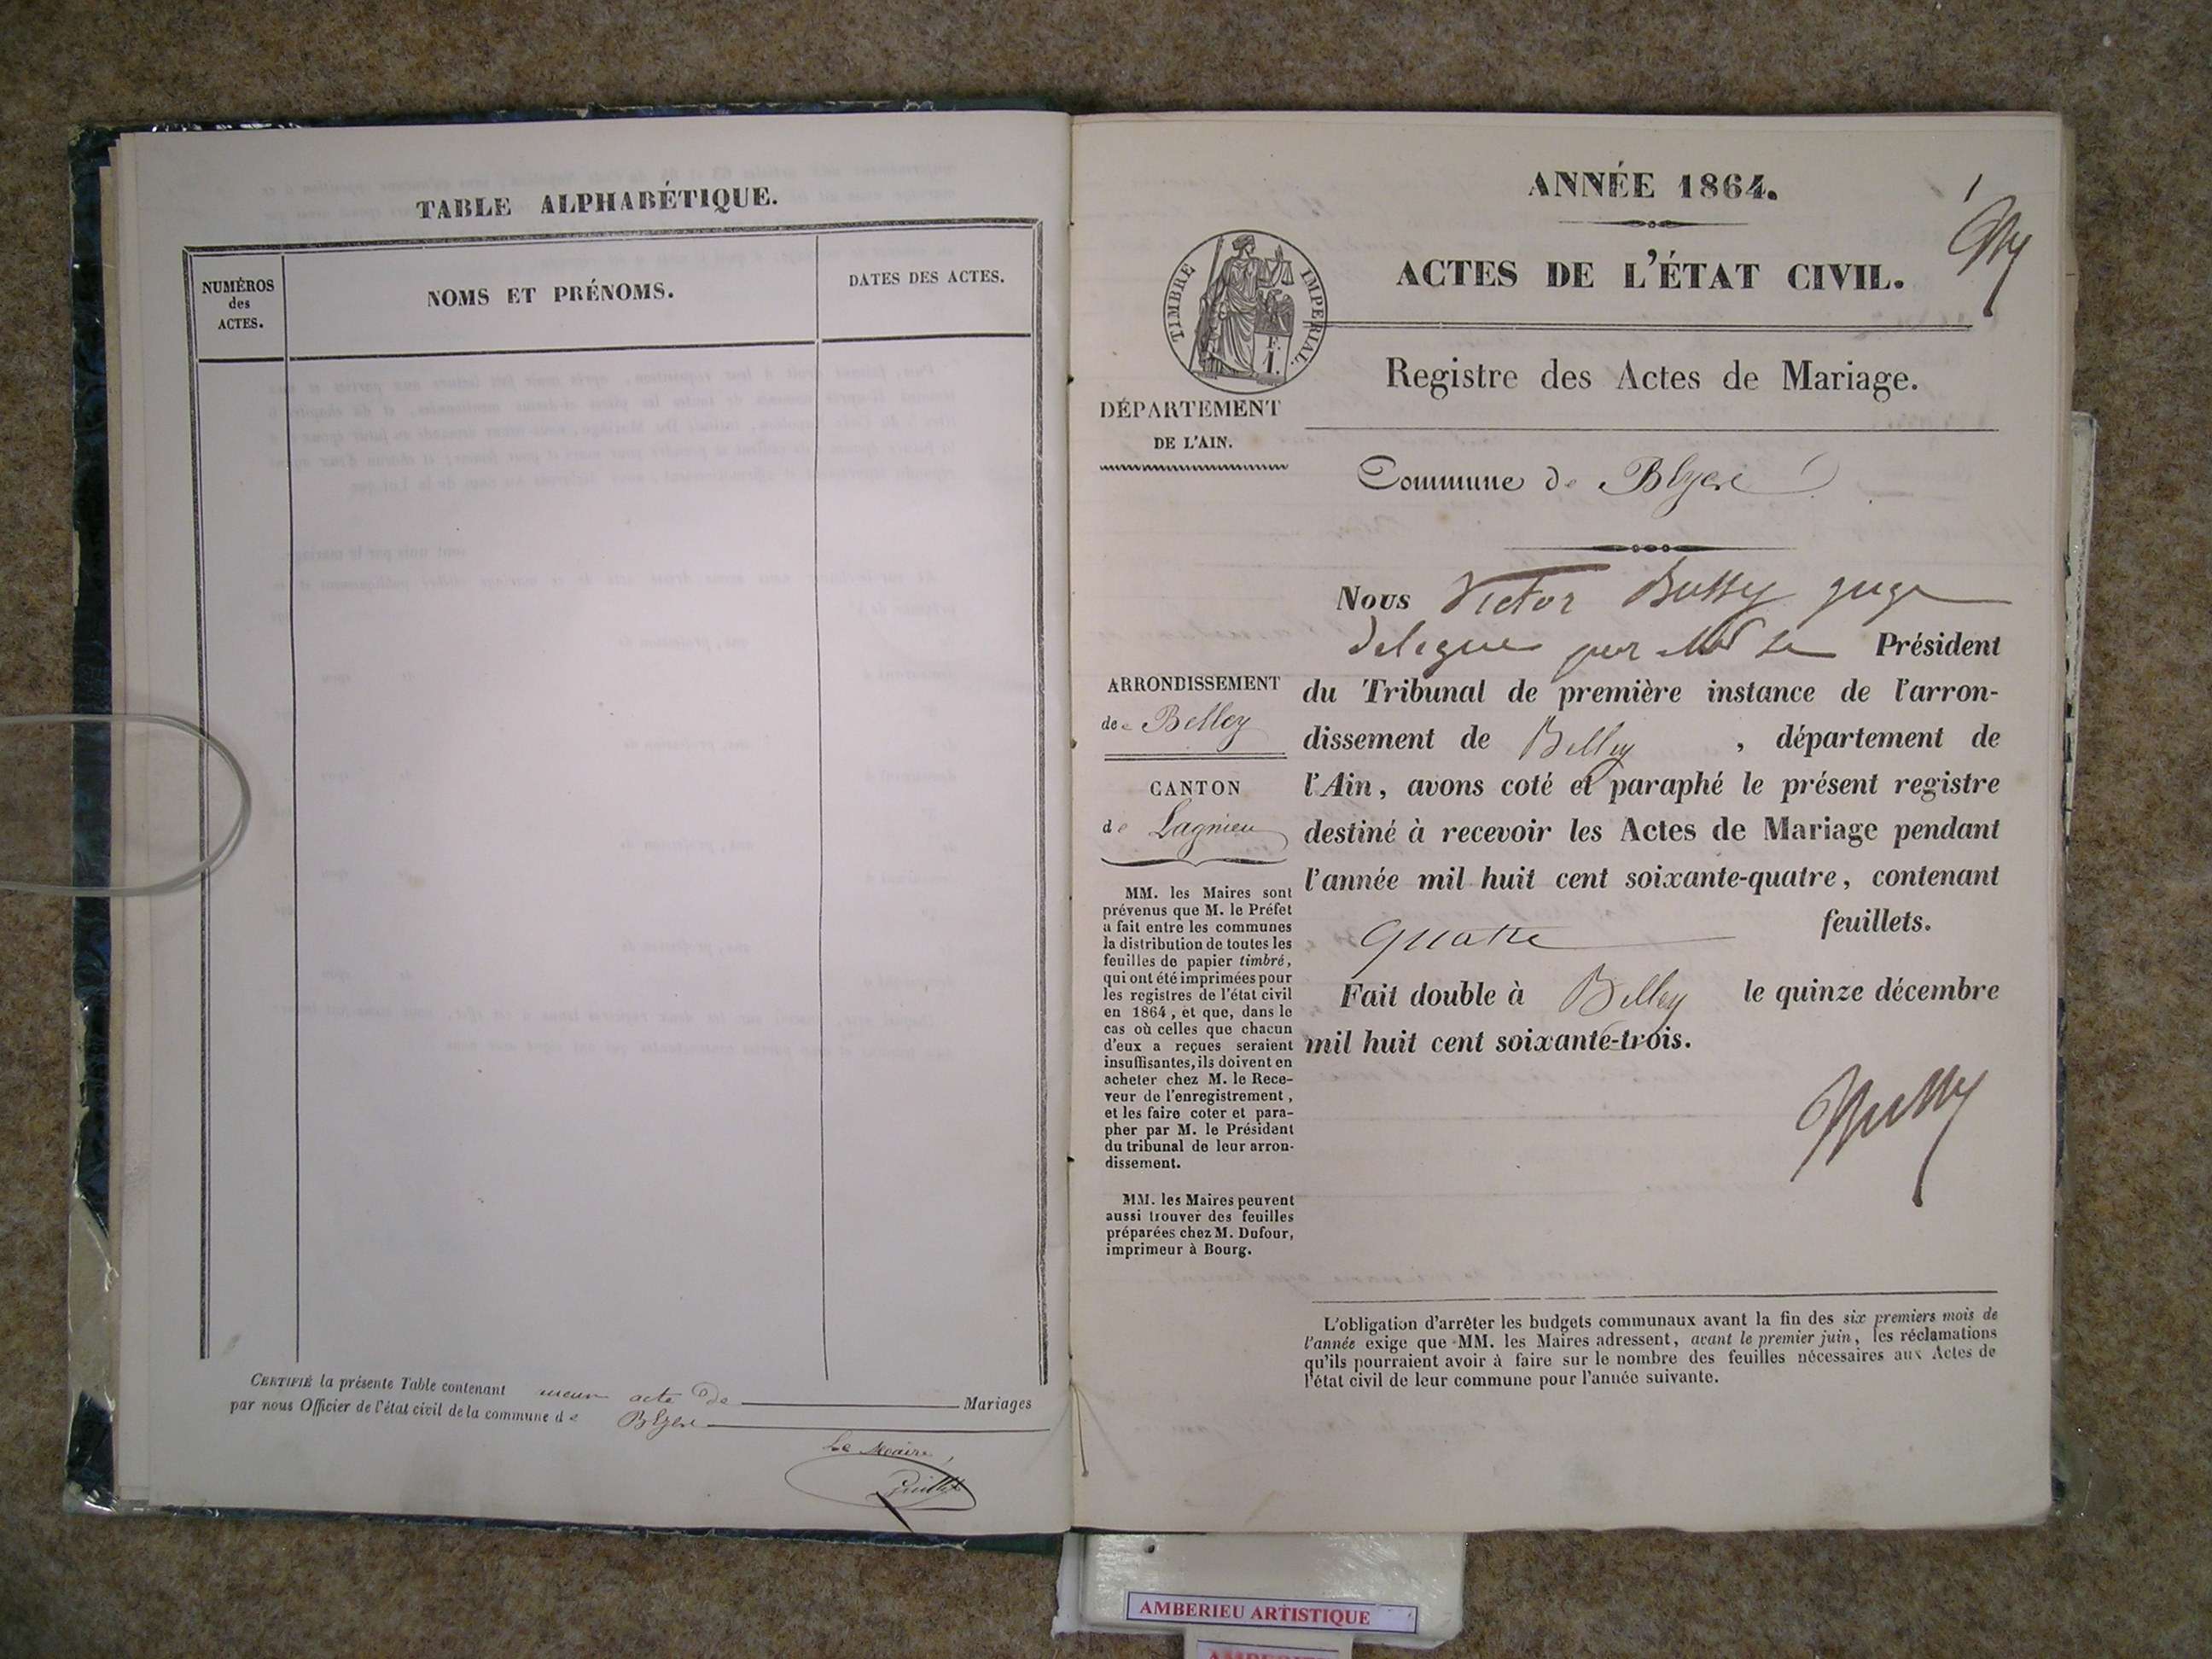 TABLE ALPHABÉTIQUE.
NUMÉROS
des
ACTES.
NOMS ET PRÉNOMS.
DATES DES ACTES.
CERTIFIÉ la présente Table contenant aucun acte de Mariages
par nous Officier de l'état civil de la commune de Blyes
Le Maire
ANNÉE 1864.
1
ACTES DE L'ÉTAT CIVIL.
TIMBRE IMPÉRIAL.
F.
1.
Registre des Actes de Mariage.
DÉPARTEMENT
DE L'AIN.
Commune de
Nous Victor Bussy juge
délégué par Mr le Président
ARRONDISSEMENT
de Belley
CANTON
de Lagnieu
du Tribunal de première instance de l'arron-
dissement de Belley , département de
l'Ain, avons coté et paraphé le présent registre
destiné à recevoir les Actes de Mariage pendant
l'année mil huit cent soixante-quatre, contenant
quatre feuillets.
Fait double à Belley le quinze décembre
mil huit cent soixante-trois.
Bussy
MM. les Maires sont
prévenus que M. le Préfet
a fait entre les communes
la distribution de toutes les
feuilles de papier timbré,
qui ont été imprimées pour
les registres de l'état civil
en 1864, et que, dans le
cas où celles que chacun
d'eux a reçues seraient
insuffisantes, ils doivent en
acheter chez M. le Rece-
veur de l'enregistrement,
et les faire coter et para-
pher par M. le Président
du tribunal de leur arron-
dissement.
MM. les Maires peuvent
aussi trouver des feuilles
préparées chez M. Dufour,
imprimeur à Bourg.
L'obligation d'arrêter les budgets communaux avant la fin des six premiers mois de
l'année exige que MM. les Maires adressent, avant le premier juin, les réclamations
qu'ils pourraient avoir à faire sur le nombre des feuilles nécessaires aux Actes de
l'état civil de leur commune pour l'année suivante.
AMBERIEU ARTISTIQUE